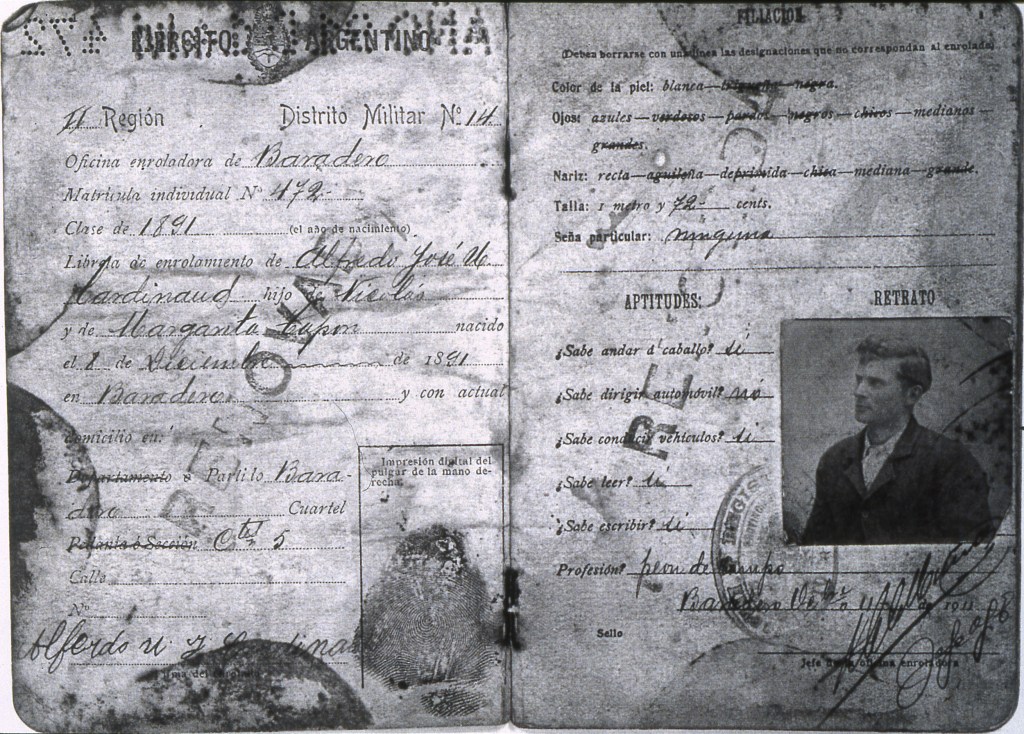 EJERCITO ARGENTINO
II Región Distrito Militar Nº 14
Oficina enroladora de Baradero
Matrícula individual Nº 472
Clase de 1891 (el año de nacimiento)
Libreta de enrolamiento de Alfredo José N.
Cardinaud hijo de Nicolás
y de Margarita Capon nacido
el 8 de Diciembre de 1891
en Baradero y con actual
domicilio en:
Departamento o Partido Bara-
dero Cuartel
Pedanía ó Sección Ctel 5
Calle
Nº
Impresión digital del
pulgar de la mano de-
recha.
Firma del enrolado
FILIACION
(Deben borrarse con una línea las designaciones que no correspondan al enrolado)
Color de la piel: blanca—trigueña—negra.
Ojos: azules—verdosos—pardos—negros—chicos—medianos—
grandes.
Nariz: recta—aguileña—deprimida—chica—mediana—grande.
Talla: 1 metro y 72 cents.
Seña particular: ninguna
APTITUDES:
RETRATO
¿Sabe andar á caballo? sí
¿Sabe dirigir automóvil? no
¿Sabe conducir vehículos? sí
¿Sabe leer? sí
¿Sabe escribir? sí
Profesión? peon de campo
Baradero de 1911
Sello
Jefe de la oficina enroladora